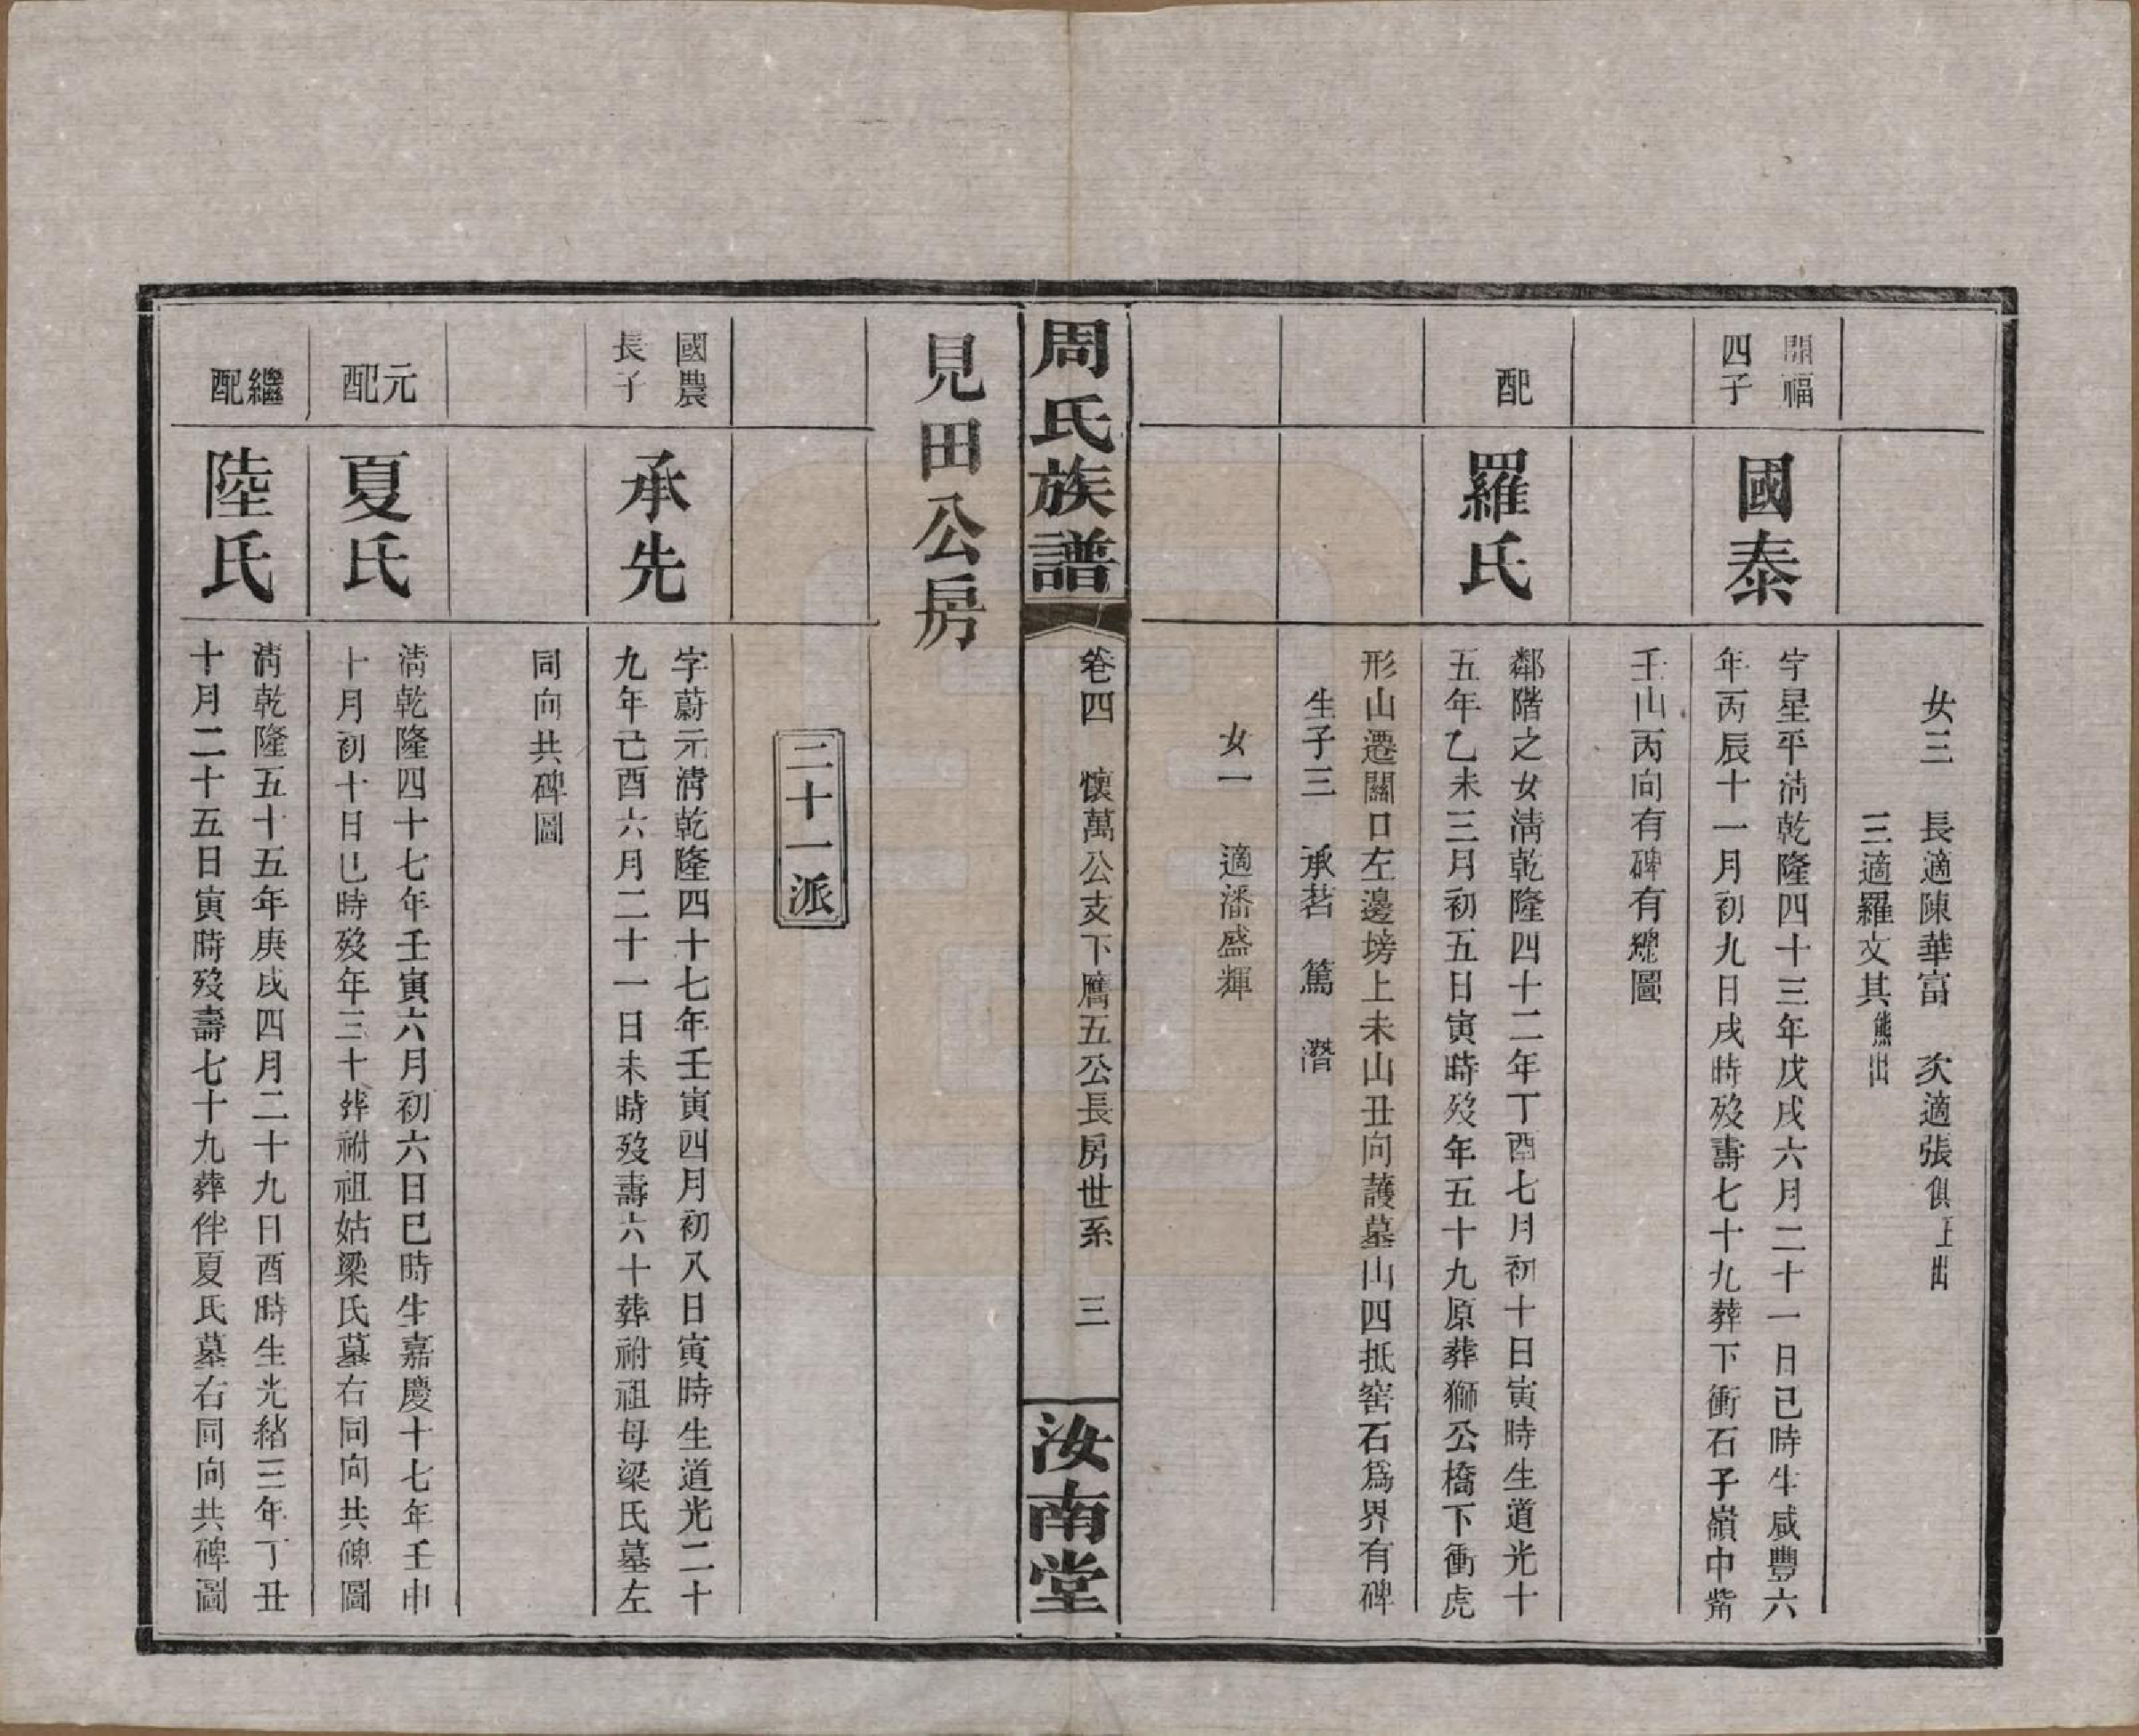 女三　長適陳華富　次適張俱王出
三適羅文其熊出
開福
四子
國泰
字星平淸乾隆四十三年戊戌六月二十一日巳時生咸豐六
年丙辰十一月初九日戌時歿壽七十九葬下衝石子嶺中嘴
壬山丙向有碑有總圖
配
羅氏
鄰階之女淸乾隆四十二年丁酉七月初十日寅時生道光十
五年乙未三月初五日寅時歿年五十九原葬獅公橋下衝虎
形山遷關口左邊塝上未山丑向護墓山四抵窖石爲界有碑
生子三　承茗　篤　濳
女一　適潘盛輝
周氏族譜
卷四　懷萬公支下膺五公長房世系　三
汝南堂
見田公房
二十一派
國農
長子
承先
字蔚元淸乾隆四十七年壬寅四月初八日寅時生道光二十
九年己酉六月二十一日未時歿壽六十葬祔祖母梁氏墓左
同向共碑圖
元配
夏氏
淸乾隆四十七年壬寅六月初六日巳時生嘉慶十七年壬申
十月初十日巳時歿年三十葬祔祖姑梁氏墓右同向共碑圖
繼配
陸氏
淸乾隆五十五年庚戌四月二十九日酉時生光緒三年丁丑
十月二十五日寅時歿壽七十九葬伴夏氏墓右同向共碑圖